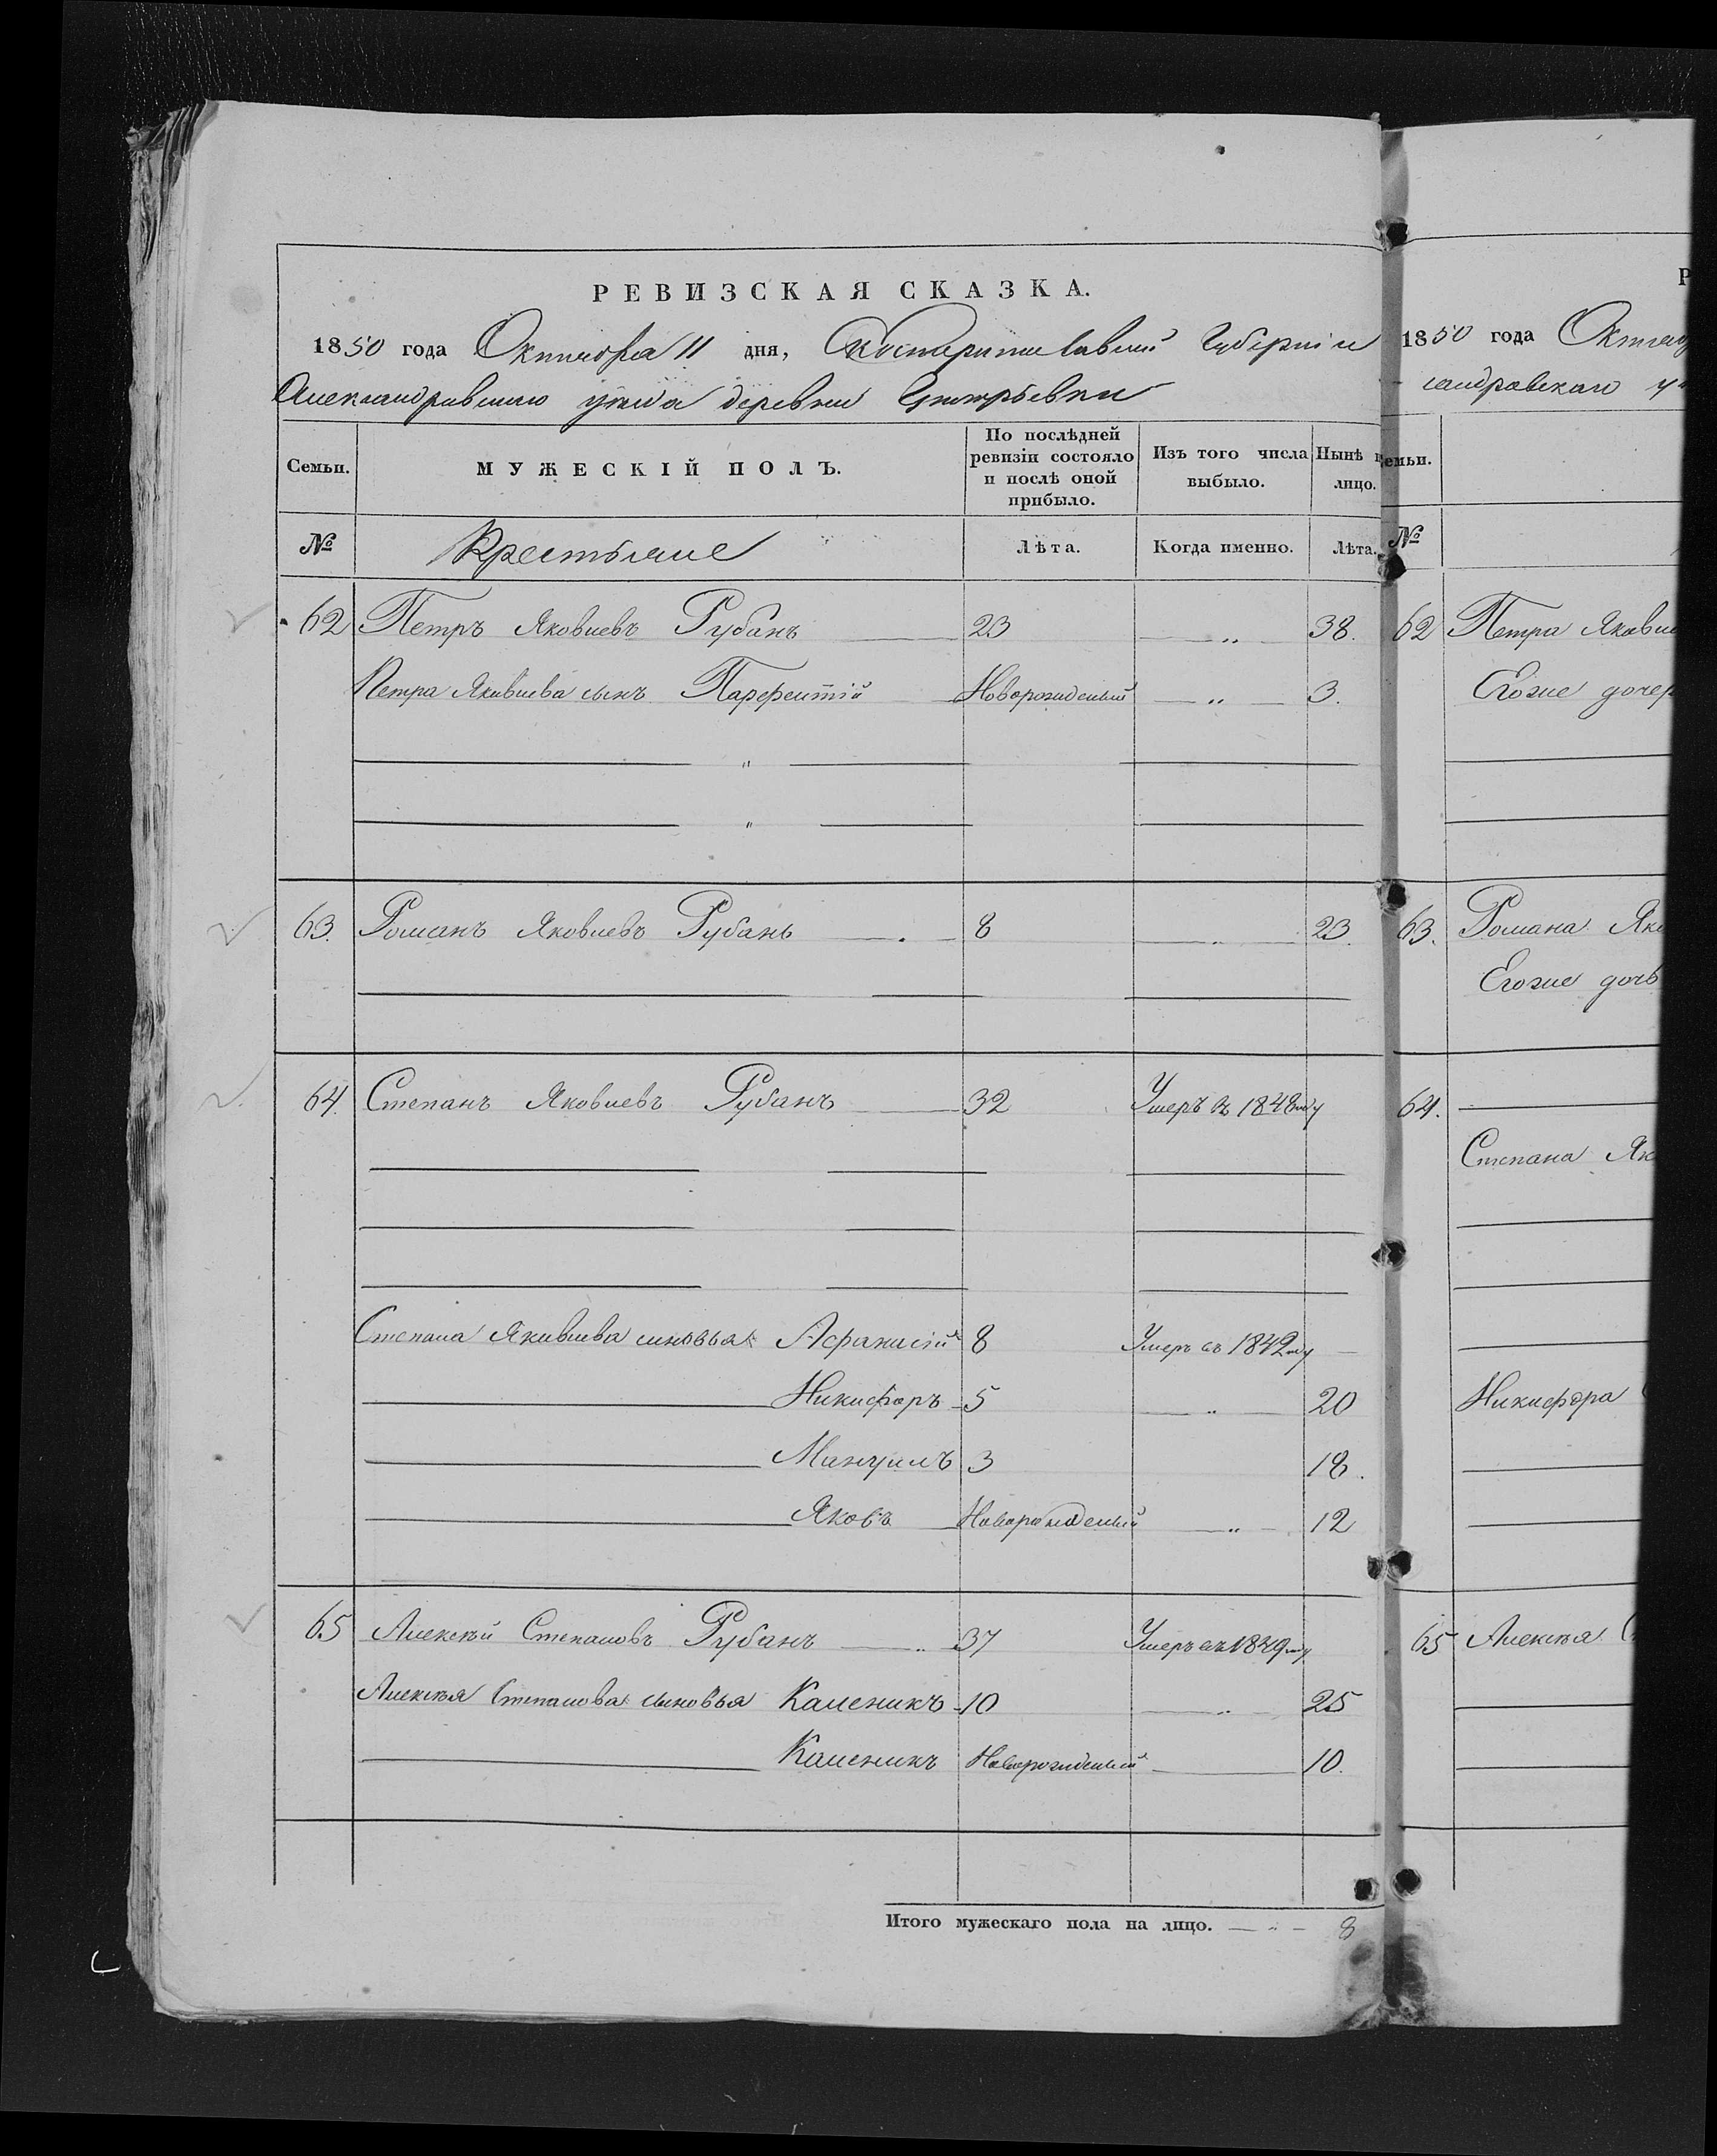 РЕВИЗСКАЯ СКАЗКА.
1850 года Октября 11 дня, Екатеринославской Губернiи
Александровскаго уѣзда деревни
Семьи.
МУЖЕСКIЙ ПОЛЪ.
По послѣдней ревизiи состояло и послѣ оной прибыло.
Изъ того числа выбыло.
Нынѣ н лицо.
№ Крестьяне Лѣта. Когда именно. Лѣта.
62 Петръ Яковлевъ Рубанъ 23 " 38.
Петра Яковлева сынъ Парфентiй Новорожденый " 3.
"
"
63. Романъ Яковлевъ Рубанъ 8 " 23.
64. Степанъ Яковлевъ Рубанъ 32 Умеръ въ 1848 году
Степана Яковлева сыновья Афанасiй 8 Умеръ въ 1842 году
Никифоръ 5 " 20
Мануилъ 3 18.
Яковъ Новорожденый " 12
65 Алексѣй Степановъ Рубанъ " 37 Умеръ въ 1849 году
Алексѣя Степанова сыновья Каленикъ 10 " 25
Каленикъ Новорожденый 10.
Итого мужескаго пола на лицо. " 8
Р
1850 года Октяб
сандровскаго у
емьи.
№
62 Петра Яковл
Егоже дочер
63. Романа Яко
Егоже дочь
64.
Степана Як
Никифора
65 Алексѣя С